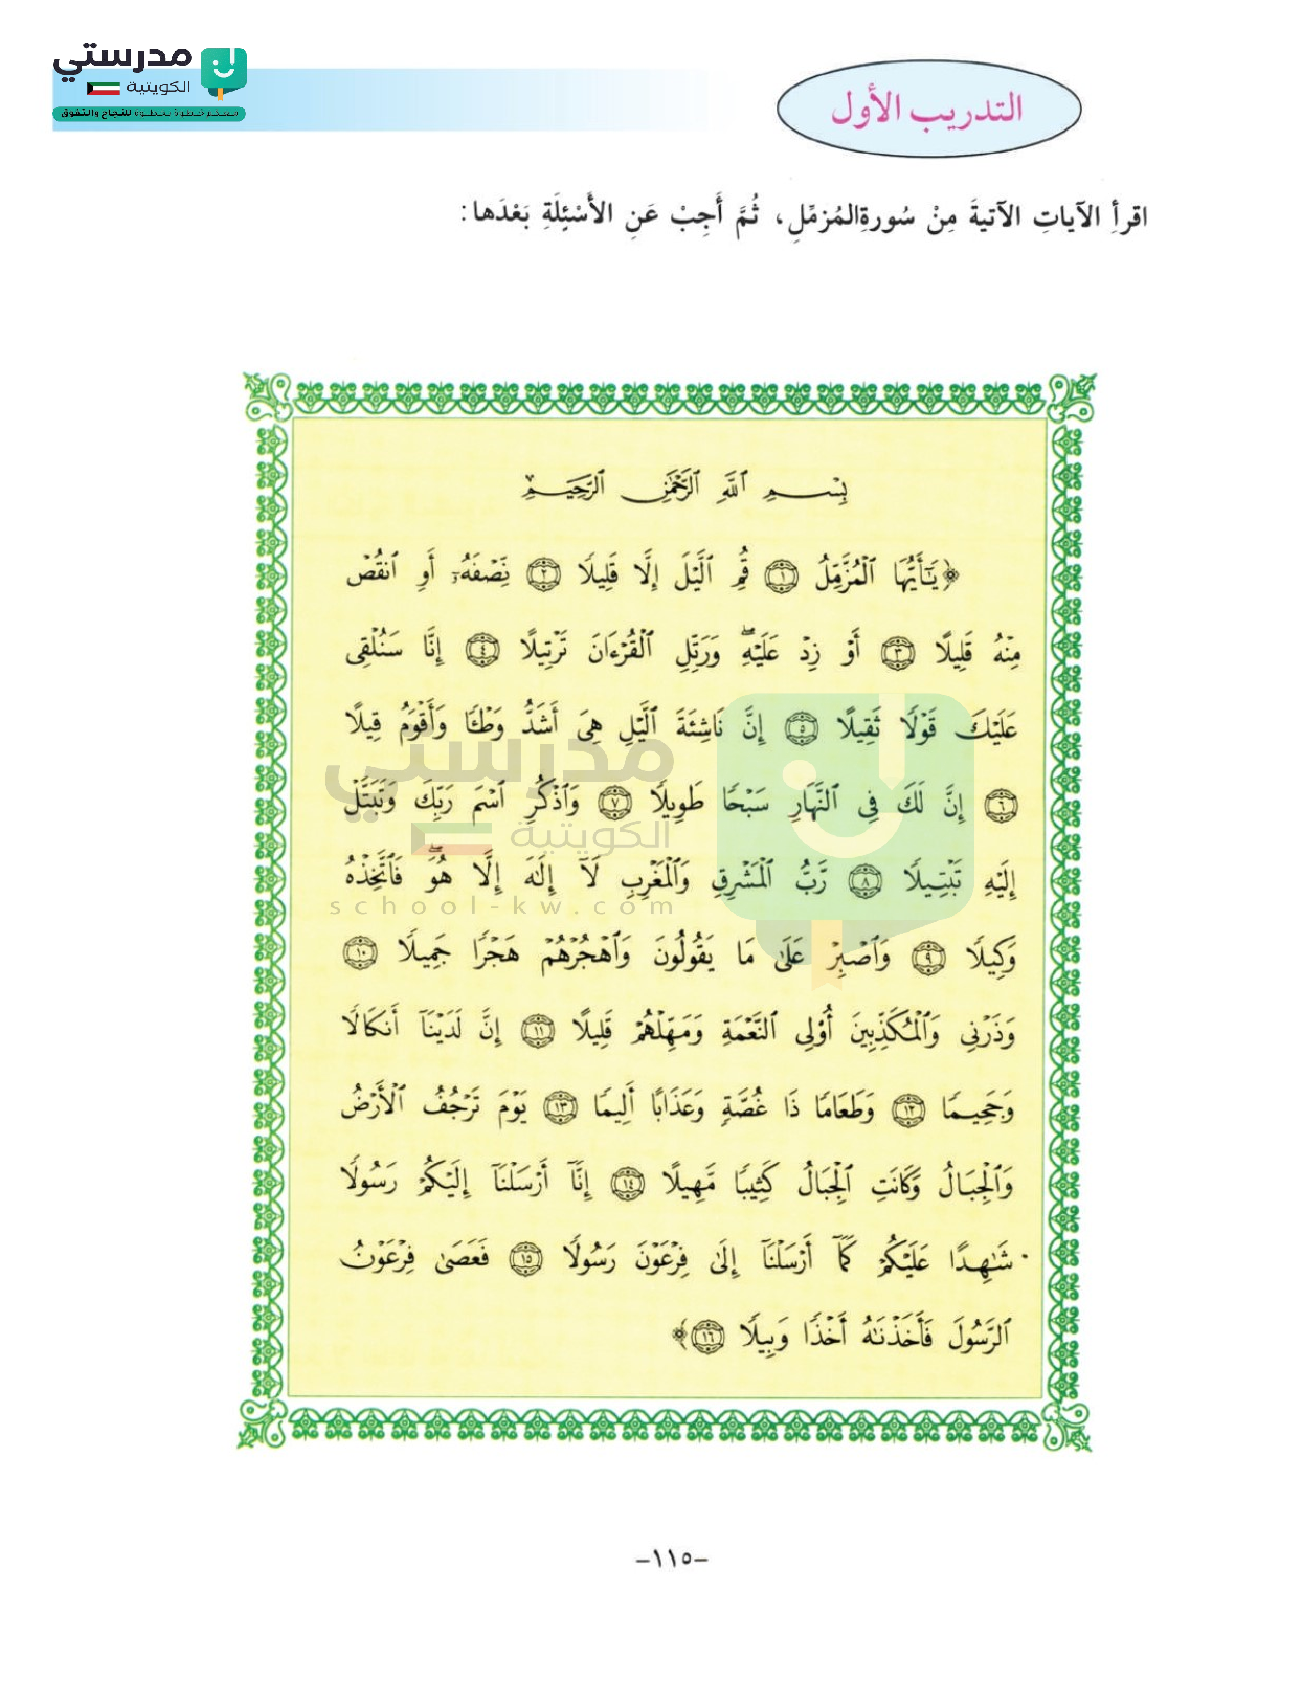 مدرستي
الكويتية
معكم خطوة بخطوة للنجاح والتفوق
التدريب الأول
اقرأِ الآياتِ الآتيةَ مِنْ سُورةِالمُزمِّلِ، ثُمَّ أَجِبْ عَنِ الأَسْئِلَةِ بَعْدَها:
بِسْمِ ٱللَّهِ ٱلرَّحْمَٰنِ ٱلرَّحِيمِ
﴿يَٰٓأَيُّهَا ٱلْمُزَّمِّلُ ١ قُمِ ٱلَّيْلَ إِلَّا قَلِيلًا ٢ نِّصْفَهُۥٓ أَوِ ٱنقُصْ
مِنْهُ قَلِيلًا ٣ أَوْ زِدْ عَلَيْهِ ۖ وَرَتِّلِ ٱلْقُرْءَانَ تَرْتِيلًا ٤ إِنَّا سَنُلْقِى
عَلَيْكَ قَوْلًا ثَقِيلًا ٥ إِنَّ نَاشِئَةَ ٱلَّيْلِ هِىَ أَشَدُّ وَطْـًٔا وَأَقْوَمُ قِيلًا
٦ إِنَّ لَكَ فِى ٱلنَّهَارِ سَبْحًا طَوِيلًا ٧ وَٱذْكُرِ ٱسْمَ رَبِّكَ وَتَبَتَّلْ
إِلَيْهِ تَبْتِيلًا ٨ رَّبُّ ٱلْمَشْرِقِ وَٱلْمَغْرِبِ لَآ إِلَٰهَ إِلَّا هُوَ ۖ فَٱتَّخِذْهُ
وَكِيلًا ٩ وَٱصْبِرْ عَلَىٰ مَا يَقُولُونَ وَٱهْجُرْهُمْ هَجْرًا جَمِيلًا ١٠
وَذَرْنِى وَٱلْمُكَذِّبِينَ أُو۟لِى ٱلنَّعْمَةِ وَمَهِّلْهُمْ قَلِيلًا ١١ إِنَّ لَدَيْنَآ أَنكَالًا
وَجَحِيمًا ١٢ وَطَعَامًا ذَا غُصَّةٍ وَعَذَابًا أَلِيمًا ١٣ يَوْمَ تَرْجُفُ ٱلْأَرْضُ
وَٱلْجِبَالُ وَكَانَتِ ٱلْجِبَالُ كَثِيبًا مَّهِيلًا ١٤ إِنَّآ أَرْسَلْنَآ إِلَيْكُمْ رَسُولًا
شَٰهِدًا عَلَيْكُمْ كَمَآ أَرْسَلْنَآ إِلَىٰ فِرْعَوْنَ رَسُولًا ١٥ فَعَصَىٰ فِرْعَوْنُ
ٱلرَّسُولَ فَأَخَذْنَٰهُ أَخْذًا وَبِيلًا ١٦﴾
مدرستي
الكويتية
school-kw.com
-١١٥-